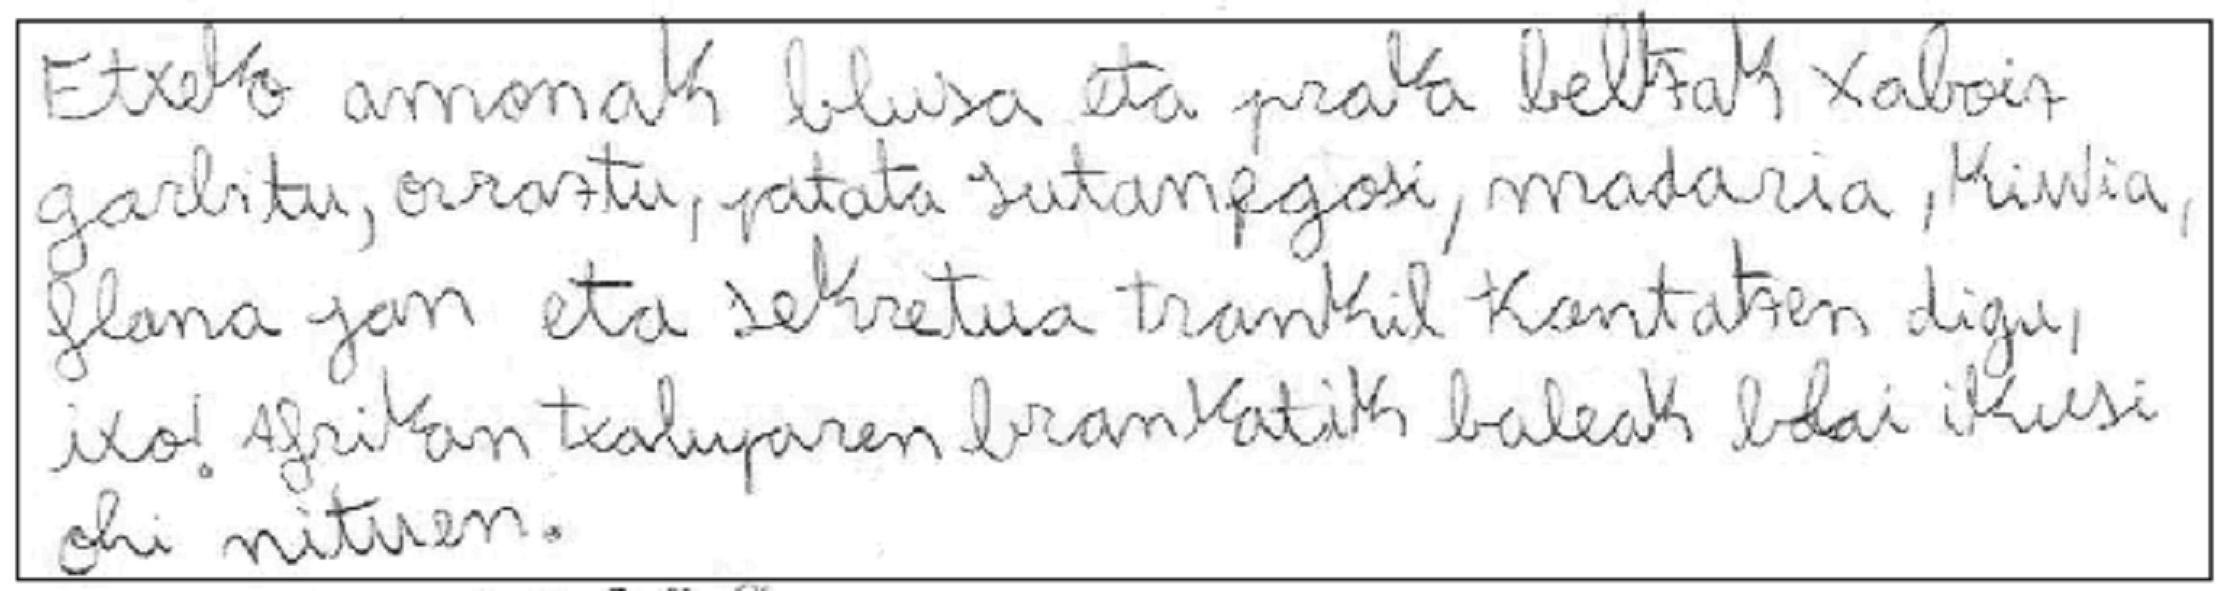 Etxeko amonak blusa eta praka beltzak xaboiz
garbitu, orraztu, patata sutan egosi, madaria, kiwia,
flana jan eta sekretua trankil kontatzen digu,
ixo! Afrikan txaluparen brankatik baleak bdai ikusi
ohi nituen.